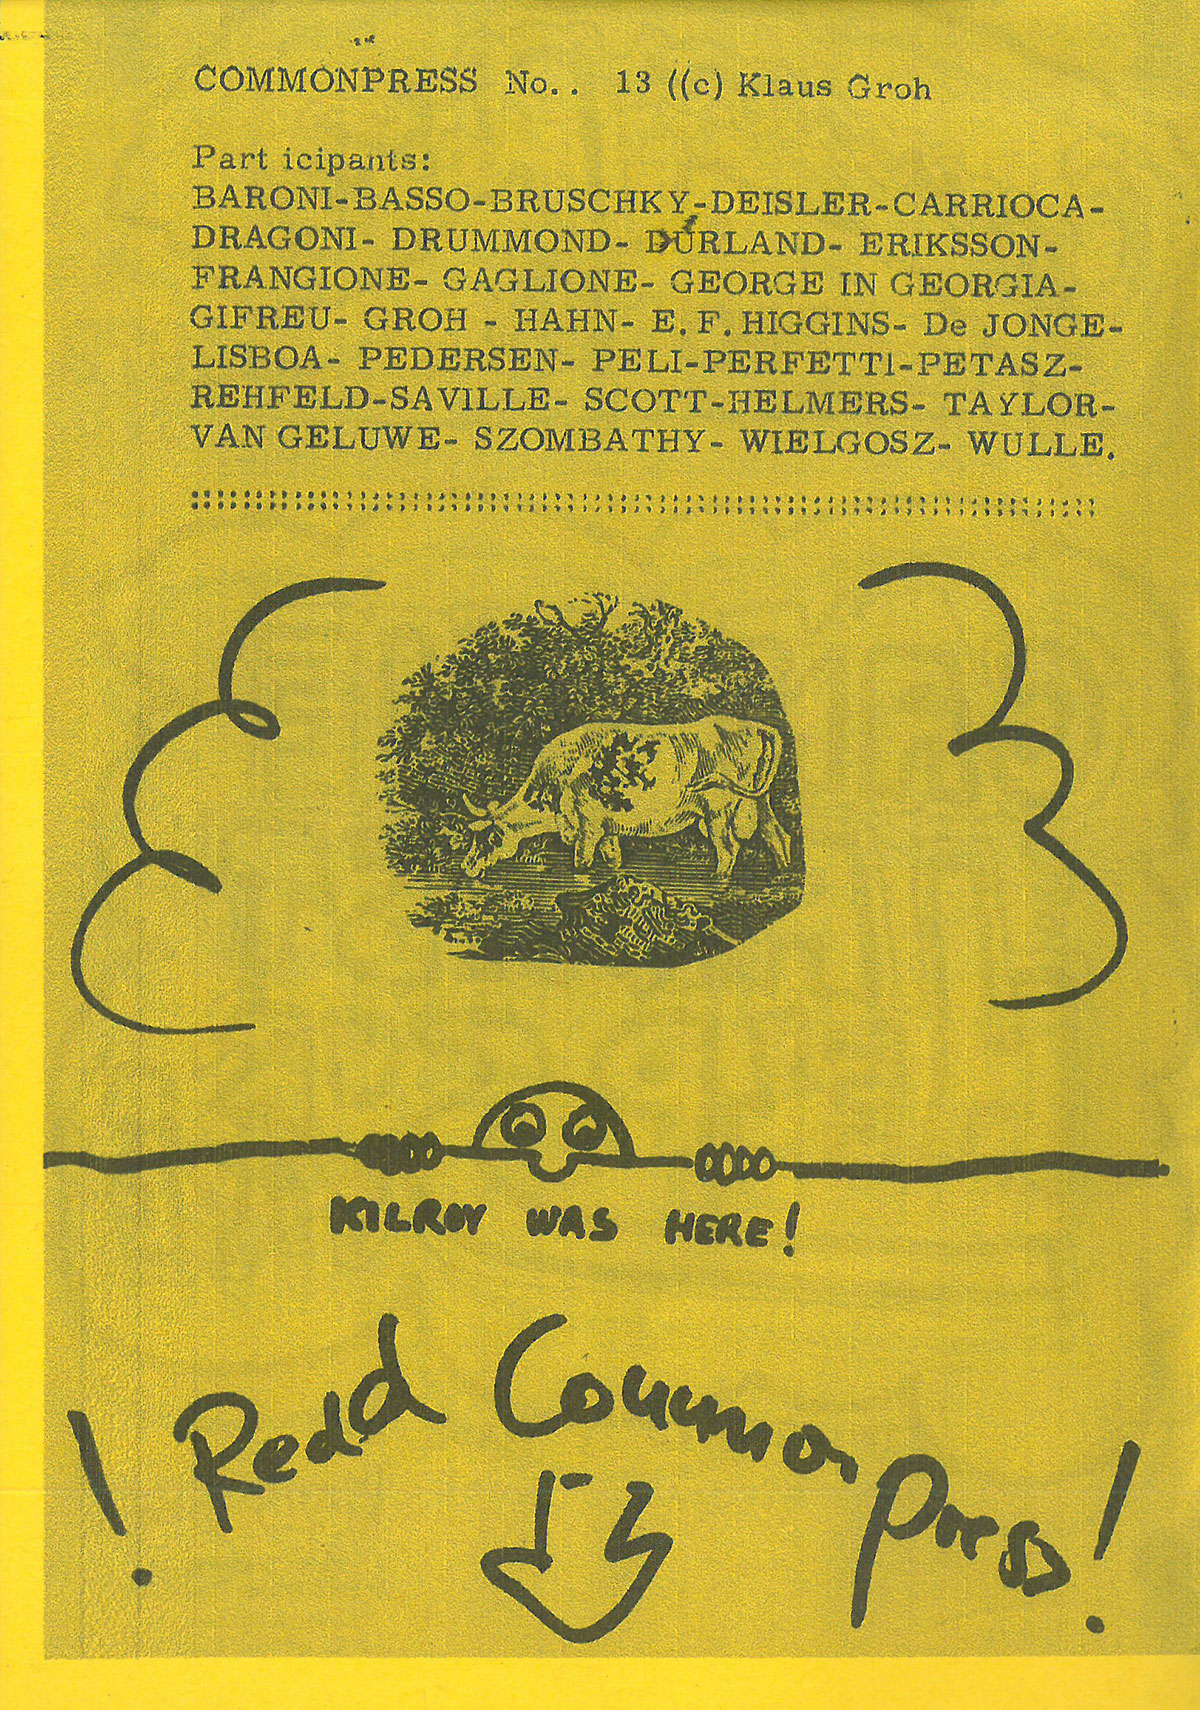 COMMONPRESS No.. 13 ((c) Klaus Groh
Part icipants:
BARONI-BASSO-BRUSCHKY-DEISLER-CARRIOCA-
DRAGONI- DRUMMOND- DURLAND- ERIKSSON-
FRANGIONE- GAGLIONE- GEORGE IN GEORGIA-
GIFREU- GROH - HAHN- E.F.HIGGINS- De JONGE-
LISBOA- PEDERSEN- PELI-PERFETTI-PETASZ-
REHFELD-SAVILLE- SCOTT-HELMERS- TAYLOR-
VAN GELUWE- SZOMBATHY- WIELGOSZ- WULLE.
KILROY WAS HERE!
! Read Commonpress!